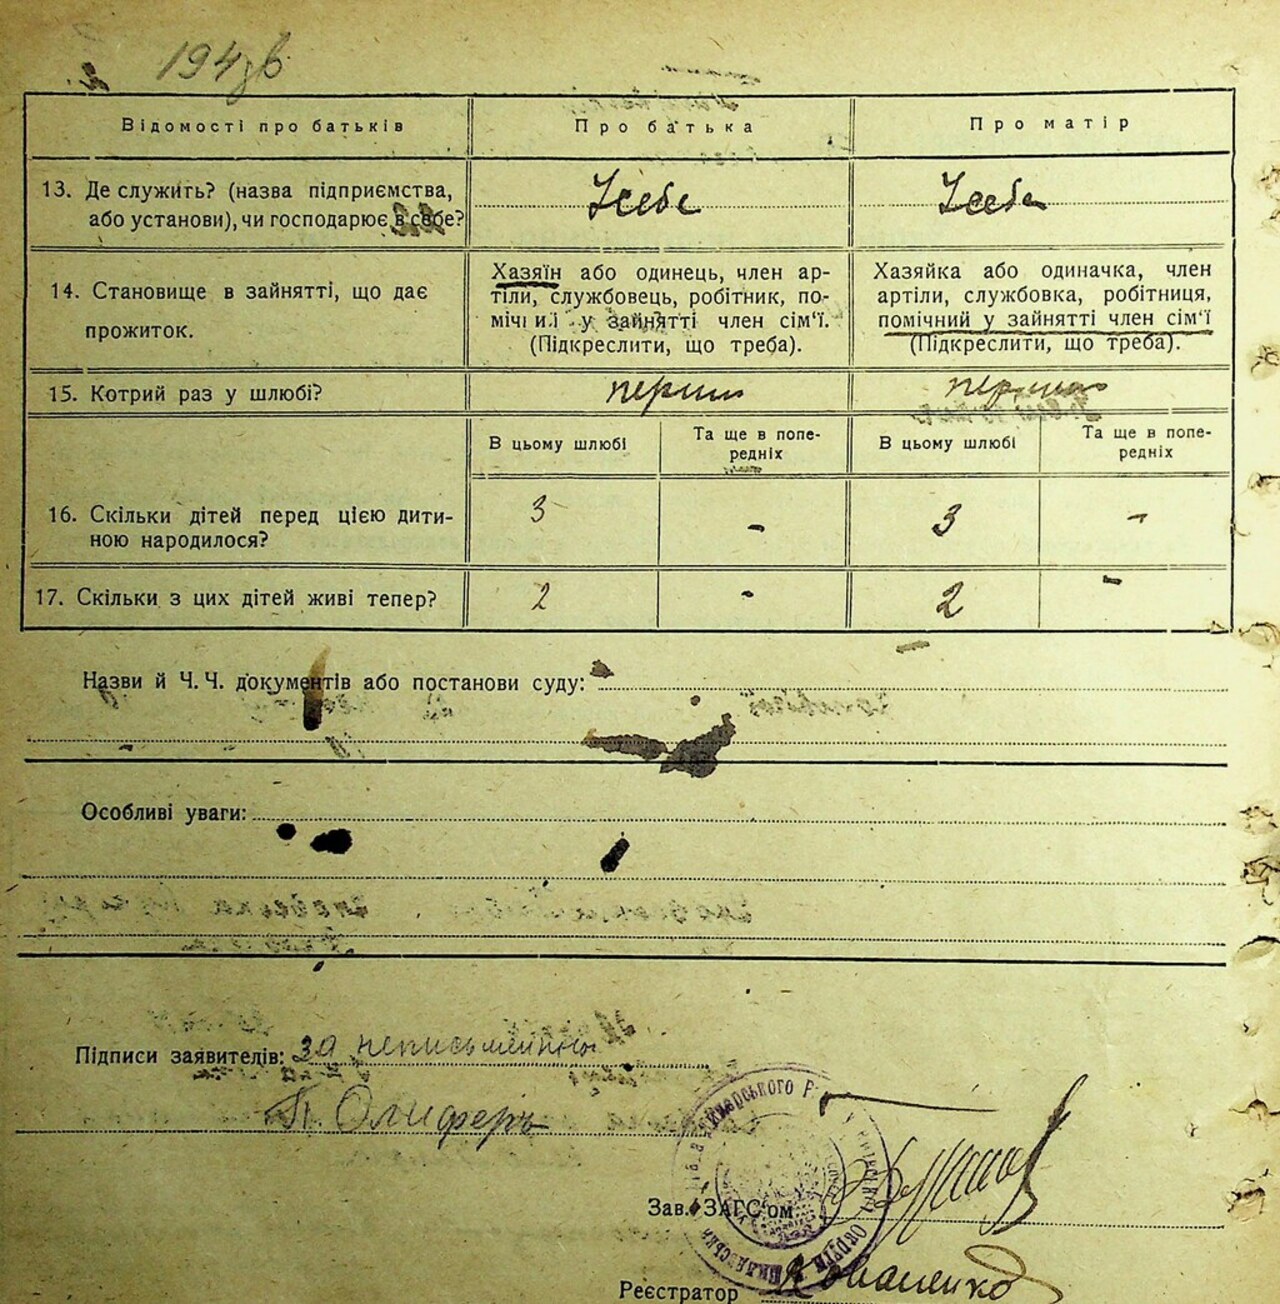 194зв
Відомості про батьків
Про батька
Про матір
13. Де служить? (назва підприємства,
або установи), чи господарює в себе?
У себе
У себе
14. Становище в зайнятті, що дає
прожиток.
Хазяїн або одинець, член ар-
тіли, службовець, робітник, по-
мічний у зайнятті член сім'ї.
(Підкреслити, що треба).
Хазяйка або одиначка, член
артіли, службовка, робітниця,
помічний у зайнятті член сім'ї
(Підкреслити, що треба).
15. Котрий раз у шлюбі?
перший
перший
В цьому шлюбі
Та ще в попе-
редніх
В цьому шлюбі
Та ще в попе-
редніх
16. Скільки дітей перед цією дити-
ною народилося?
3
-
3
-
17. Скільки з цих дітей живі тепер?
2
-
2
-
Назви й Ч. Ч. документів або постанови суду:
Особливі уваги:
Підписи заявителів: за неписьменны
П. Олиферъ
Зав. ЗАГС'ом
Реєстратор Коваленко